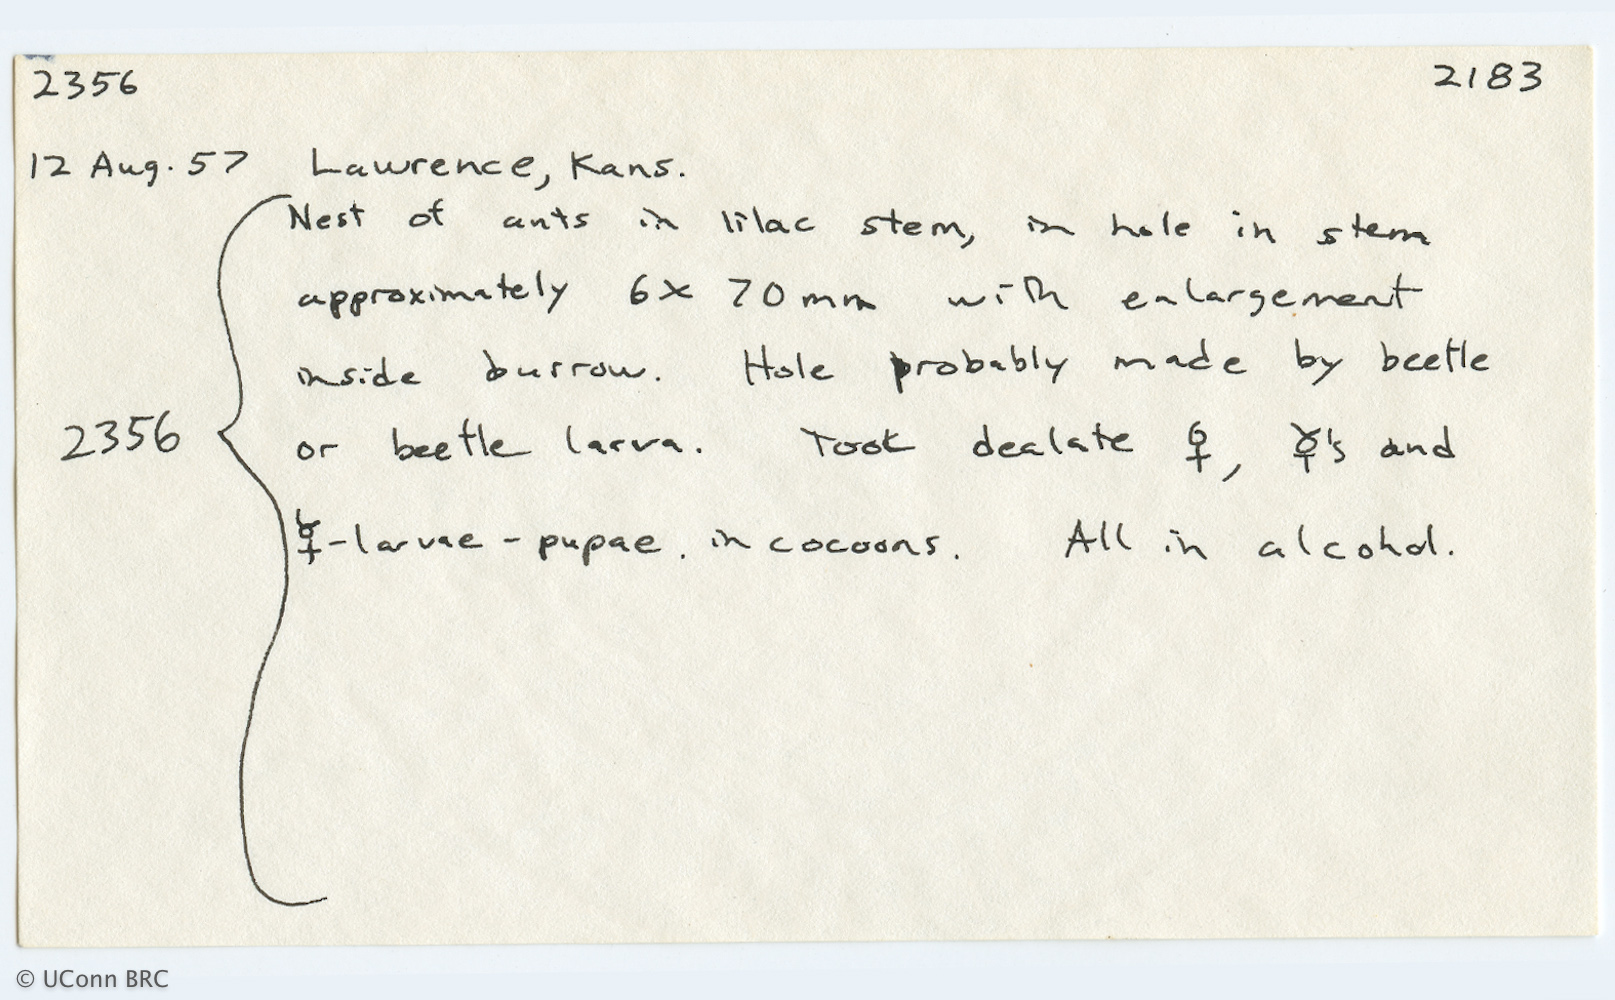 2356 2183
12 Aug. 57 Lawrence, Kans.
Nest of ants in lilac stem, in hole in stem
approximately 6 x 70 mm with enlargement
inside burrow. Hole probably made by beetle
2356 or beetle larva. Took dealate ♀, ☿'s and
☿-larvae - pupae in cocoons. All in alcohol.
© UConn BRC